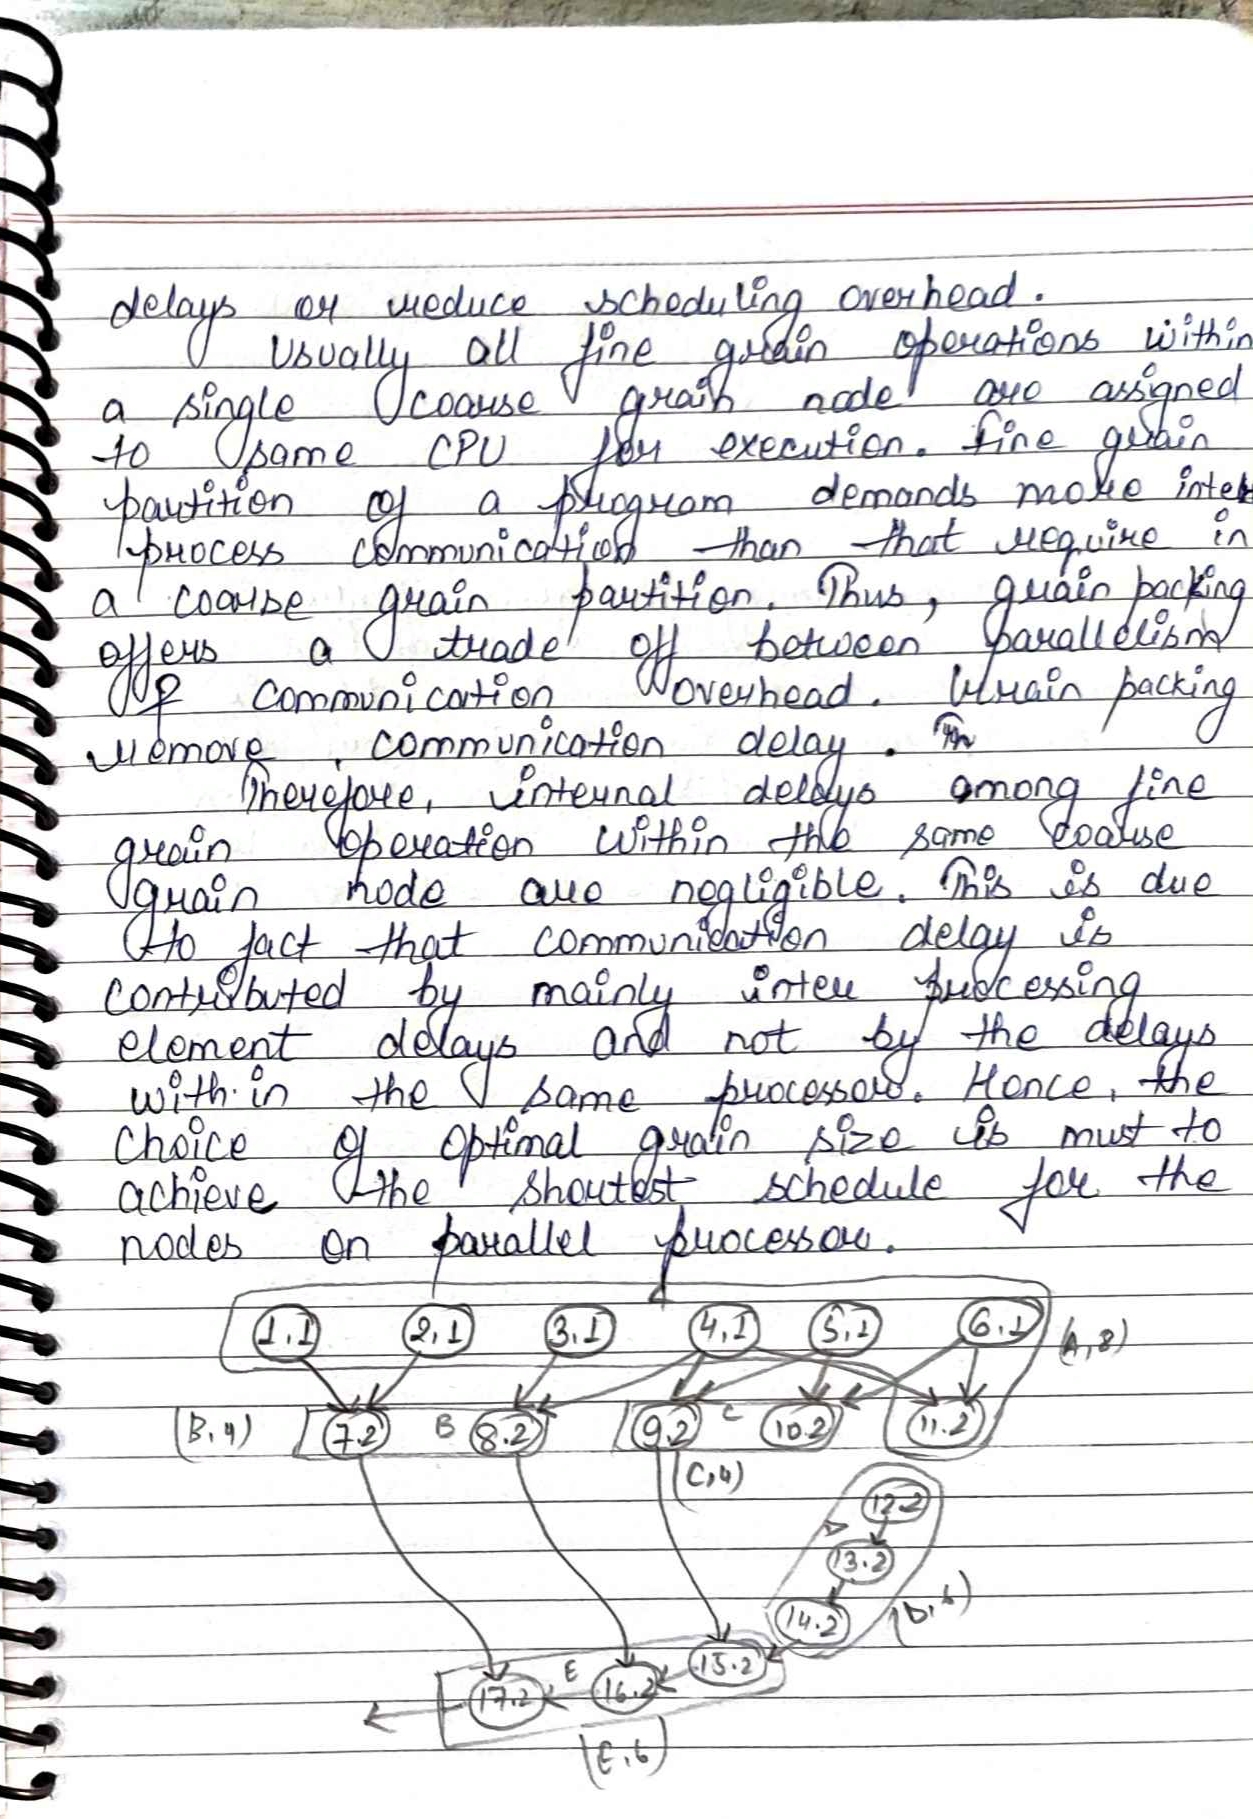 delays or reduce scheduling overhead.
Usually all fine grain operations within
a single coarse grain node are assigned
to same CPU for execution. Fine grain
partition of a program demands more inter
process communication than that require in
a coarse grain partition. Thus, grain packing
offers a trade off between parallelism
& communication overhead. Grain packing
remove communication delay.
Therefore, internal delays among fine
grain operation within the same coarse
grain node are negligible. This is due
to fact that communication delay is
contributed by mainly inter processing
element delays and not by the delays
with in the same processor. Hence, the
choice of optimal grain size is must to
achieve the shortest schedule for the
nodes on parallel processor.
1.1 2,1 3.1 4,1 5,1 6,1 (A,8)
(B,4) 7.2 B 8.2 9.2 C 10.2 11.2
(C,4)
12.2
D 13.2
14.2 (D,6)
15.2
17.2 E 16.2
(E,6)